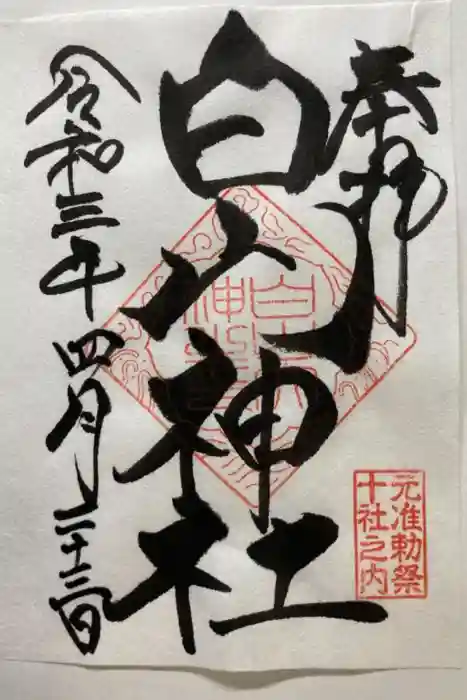 奉拝
白山神社
令和三年四月二十三日
元准勅祭
十社之内